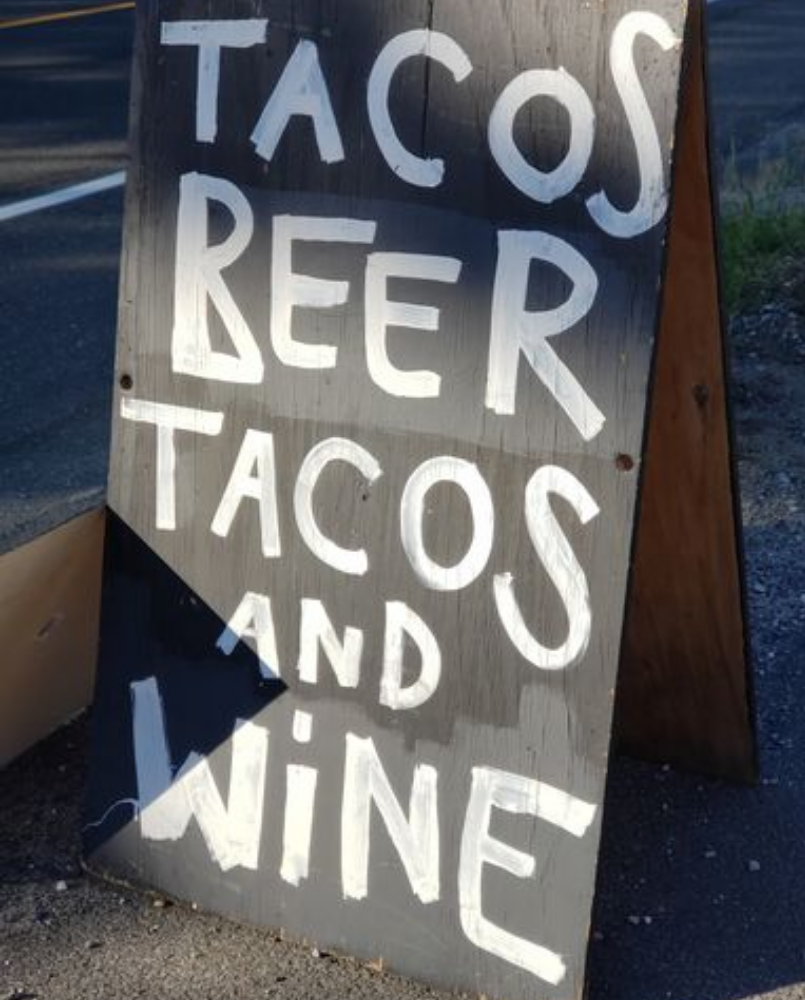 TACOS
BEER
TACOS
AND
WiNE